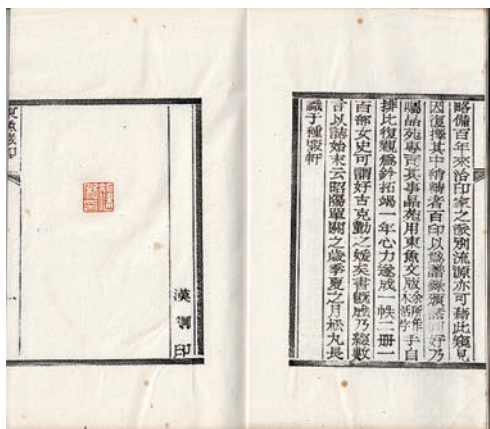 略備百年來治印家之派別流源亦可藉此窺見
因復擇其中精精者百印以爲譜錄頒諸同好乃
囑品苑專責其事品苑用東魚文版余所作木活字手自
排比復親爲鈐拓竭一年心力遂成一帙二冊一
百部女史可謂好古克勤之媛矣書旣成乃綴數
言以誌始末云昭陽單閼之歲季夏之月松丸長
識于種軒
漢銅印
東魚藏印
一